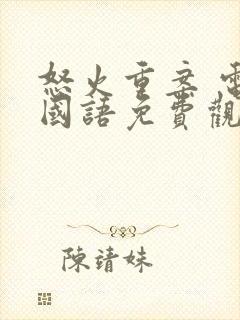 怒火重案 電
國語免費觀
陳靖妹